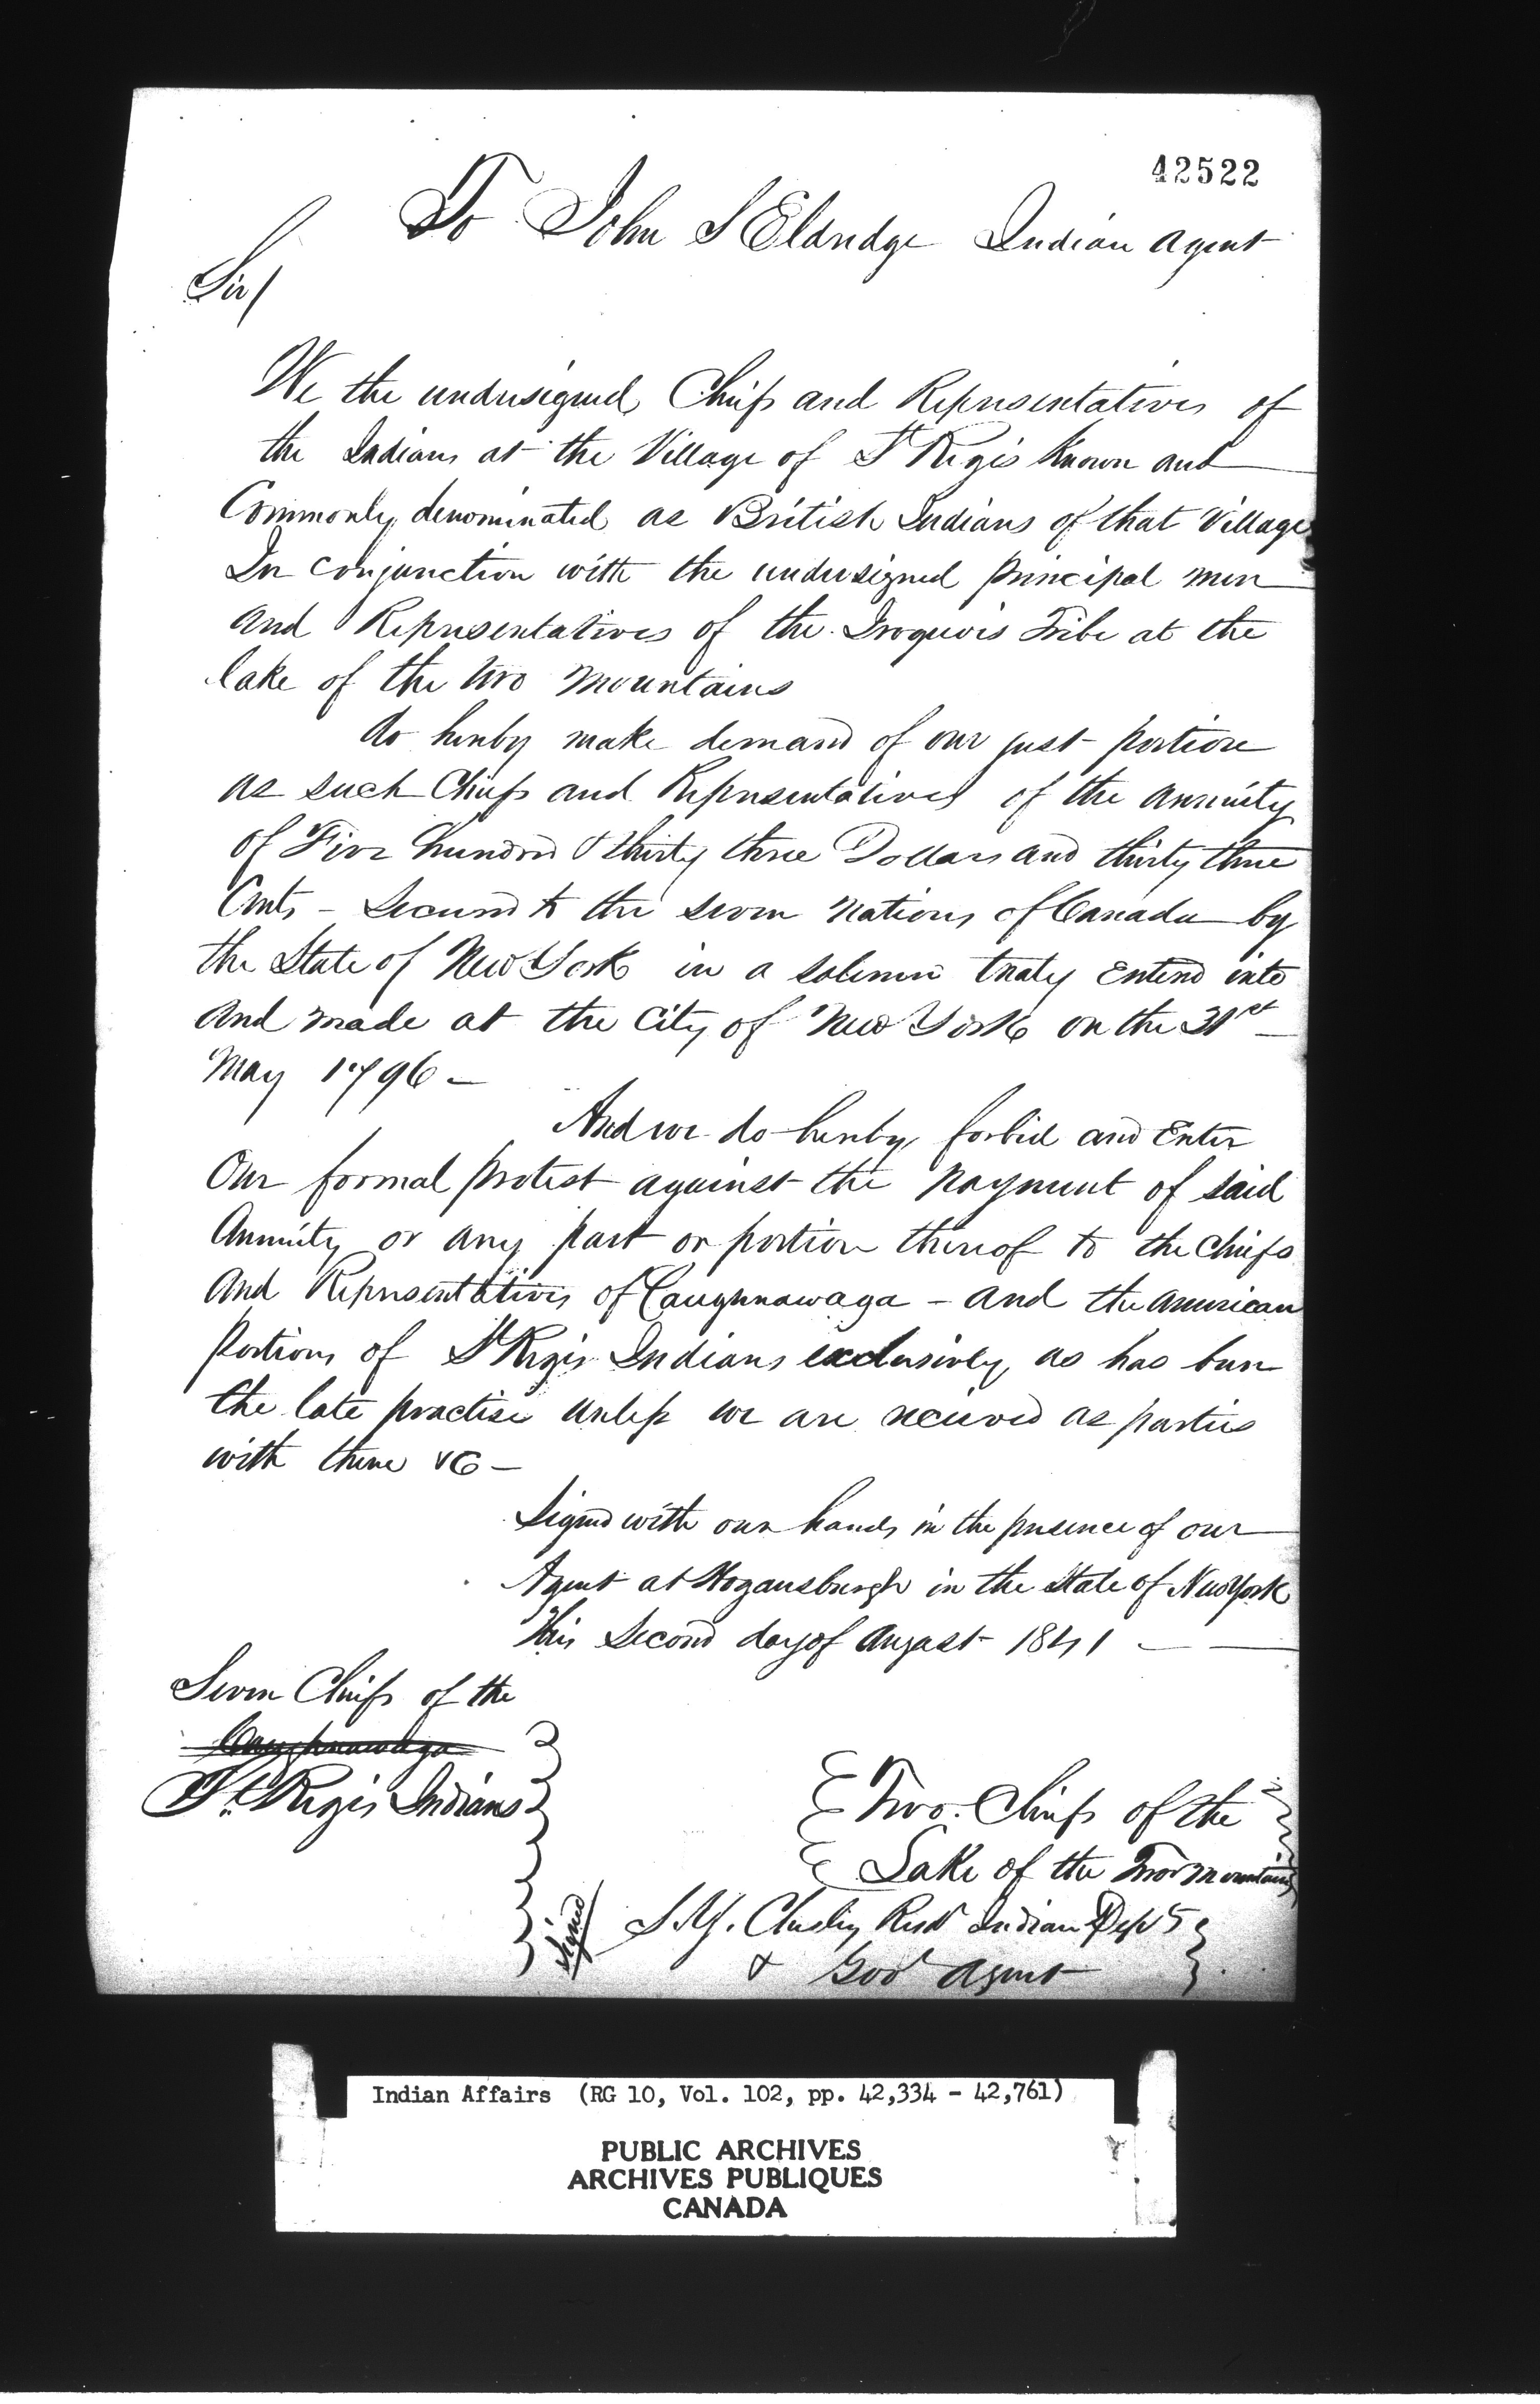 42522
To John S Eldridge Indian Agent
Sir/
We the undersigned, Chiefs and Representatives of
the Indians at the Village of St Regis Known and
Commonly denominated as British Indians of that Village
In conjunction with the undersigned principal men
and Representatives of the Iroquois Tribe at the
lake of the two Mountains
do hereby make demand of our just portion
as such Chiefs and Representatives of the annuity
of Five hundred & thirty three Dollars and thirty three
Cents - Secured to the Seven Nations of Canada by
the State of New York in a Solemn treaty entered into
and made at the City of New York on the 31st
May 1796 -
And we do hereby, forbid and Enter
Our formal protest against the payment of said
Annuity or any part or portion thereof to the Chiefs
and Representatives of Caughnawaga - and the American
Portions of St Regis Indians exclusively, as has been
the late practise unless we are received as parties
with them &c -
Signed with our hands in the presence of our
Agent at Hogansburgh in the State of New York
this Second day of August 1841 -
Seven Chiefs of the
Caughnawaga
St. Regis Indians
Two Chiefs of the
Lake of the Two Mountains
Signed
S.Y. Chesley Resdt Indian Dept
& Govt Agent
Indian Affairs (RG 10, Vol. 102, pp. 42,334 - 42,761)
PUBLIC ARCHIVES
ARCHIVES PUBLIQUES
CANADA